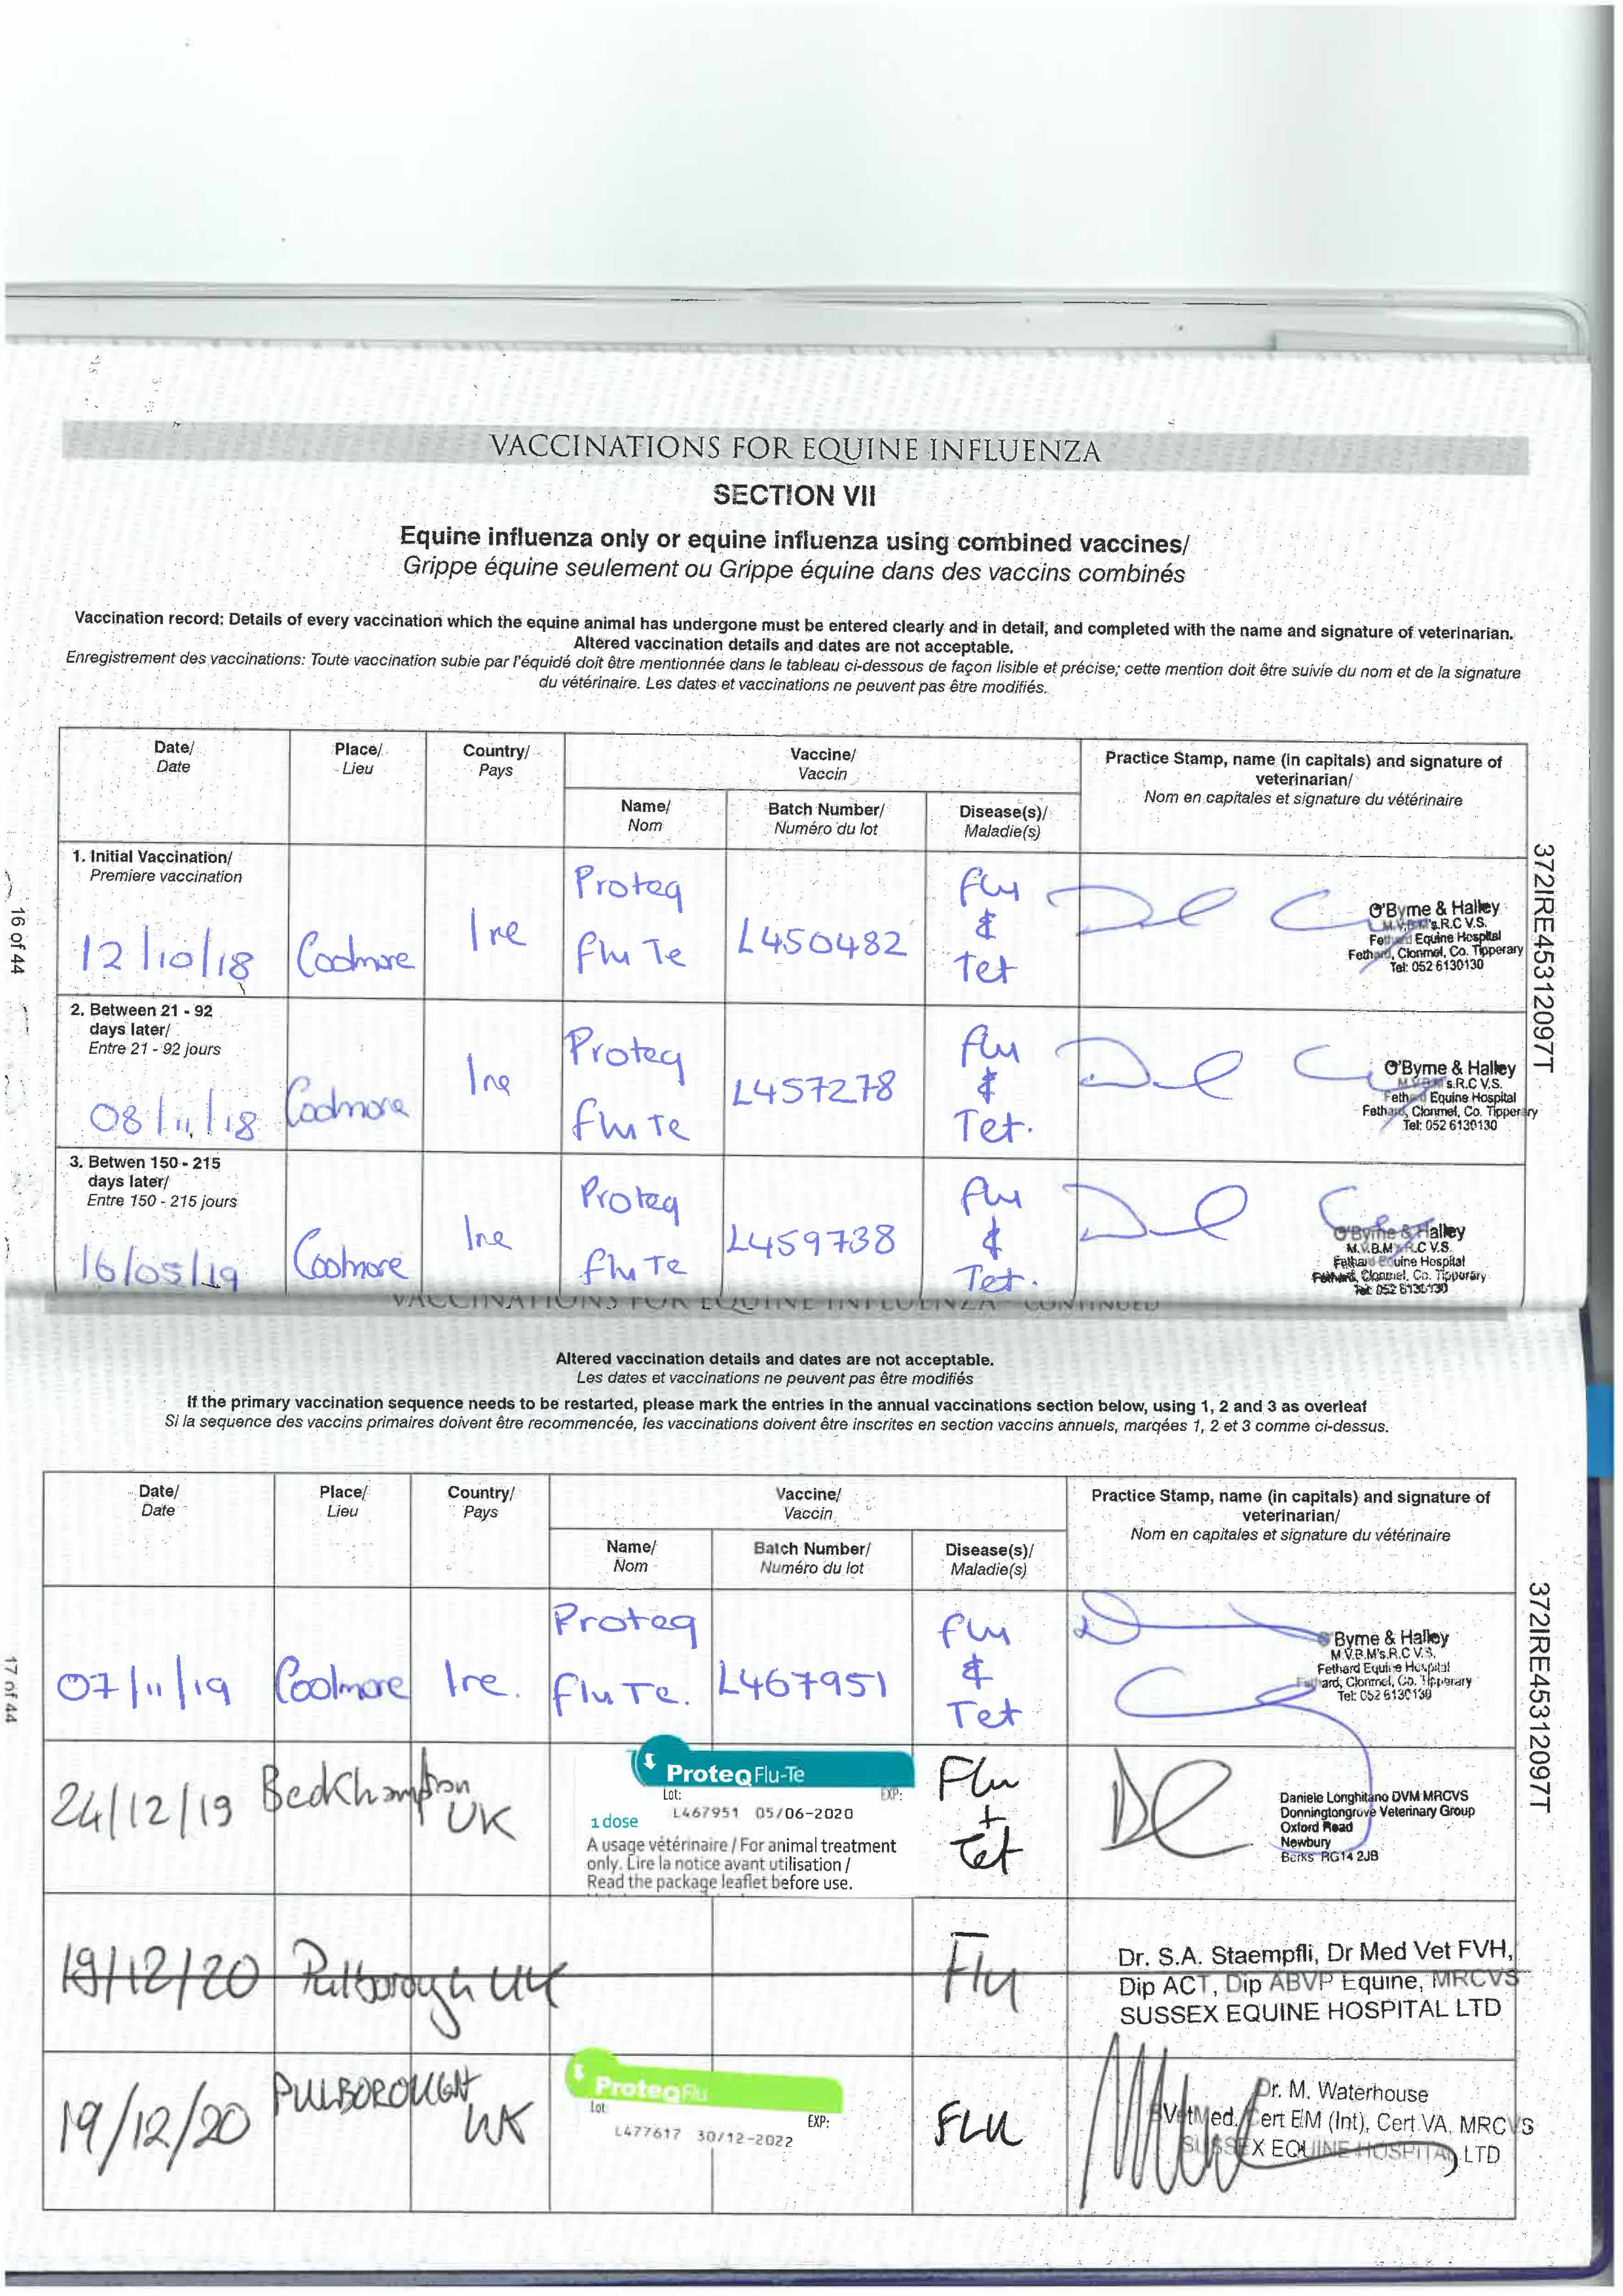 VACCINATIONS FOR EQUINE INFLUENZA
SECTION VII
Equine influenza only or equine influenza using combined vaccines/
Grippe équine seulement ou Grippe équine dans des vaccins combinés
Vaccination record: Details of every vaccination which the equine animal has undergone must be entered clearly and in detail, and completed with the name and signature of veterinarian.
Altered vaccination details and dates are not acceptable.
Enregistrement des vaccinations: Toute vaccination subie par l'équidé doit être mentionnée dans le tableau ci-dessous de façon lisible et précise; cette mention doit être suivie du nom et de la signature
du vétérinaire. Les dates et vaccinations ne peuvent pas être modifiés.
Date/
Date
Place/
Lieu
Country/
Pays
Vaccine/
Vaccin
Practice Stamp, name (in capitals) and signature of
veterinarian/
Nom en capitales et signature du vétérinaire
Name/
Nom
Batch Number/
Numéro du lot
Disease(s)/
Maladie(s)
1. Initial Vaccination/
Premiere vaccination
12/10/18
Coolmore
Ire
Proteq
flu Te
L450482
flu
&
Tet
O'Byrne & Halley
M.V.B.M's.R.C V.S.
Fethard Equine Hospital
Fethard, Clonmel, Co. Tipperary
Tel: 052 6130130
2. Between 21 - 92
days later/
Entre 21 - 92 jours
08/11/18
Coolmore
Ire
Proteq
flu Te
L457278
flu
&
Tet.
O'Byrne & Halley
M.V.B.M's.R.C V.S.
Fethard Equine Hospital
Fethard, Clonmel, Co. Tipperary
Tel: 052 6130130
3. Betwen 150 - 215
days later/
Entre 150 - 215 jours
16/05/19
Coolmore
Ire
Proteq
flu Te
L459738
flu
&
Tet.
O'Byrne & Halley
M.V.B.M's.R.C V.S.
Fethard Equine Hospital
Fethard, Clonmel, Co. Tipperary
Tel: 052 6130130
16 of 44
372IRE45312097T
VACCINATIONS FOR EQUINE INFLUENZA - CONTINUED
Altered vaccination details and dates are not acceptable.
Les dates et vaccinations ne peuvent pas être modifiés
If the primary vaccination sequence needs to be restarted, please mark the entries in the annual vaccinations section below, using 1, 2 and 3 as overleaf
Si la sequence des vaccins primaires doivent être recommencée, les vaccinations doivent être inscrites en section vaccins annuels, marqées 1, 2 et 3 comme ci-dessus.
Date/
Date
Place/
Lieu
Country/
Pays
Vaccine/
Vaccin
Practice Stamp, name (in capitals) and signature of
veterinarian/
Nom en capitales et signature du vétérinaire
Name/
Nom
Batch Number/
Numéro du lot
Disease(s)/
Maladie(s)
07/11/19
Coolmore
Ire.
Proteq
flu Te.
L467951
flu
&
Tet
O'Byrne & Halley
M.V.B.M's.R.C V.S.
Fethard Equine Hospital
Fethard, Clonmel, Co. Tipperary
Tel: 052 6130130
24/12/19
Beckhampton
UK
ProteqFlu-Te
Lot: EXP:
L467951 05/06-2020
1 dose
A usage vétérinaire / For animal treatment
only. Lire la notice avant utilisation /
Read the package leaflet before use.
Flu
+
Tet
Daniele Longhitano DVM MRCVS
Donningtongrove Veterinary Group
Oxford Road
Newbury
Berks RG14 2JB
19/12/20
Pulborough UK
Flu
Dr. S.A. Staempfli, Dr Med Vet FVH,
Dip ACT, Dip ABVP Equine, MRCVS
SUSSEX EQUINE HOSPITAL LTD
19/12/20
PULBOROUGH
UK
ProteqFlu
Lot: EXP:
L477617 30/12-2022
FLU
Dr. M. Waterhouse
BVetMed. Cert EM (Int), Cert VA, MRCVS
SUSSEX EQUINE HOSPITAL LTD
17 of 44
372IRE45312097T